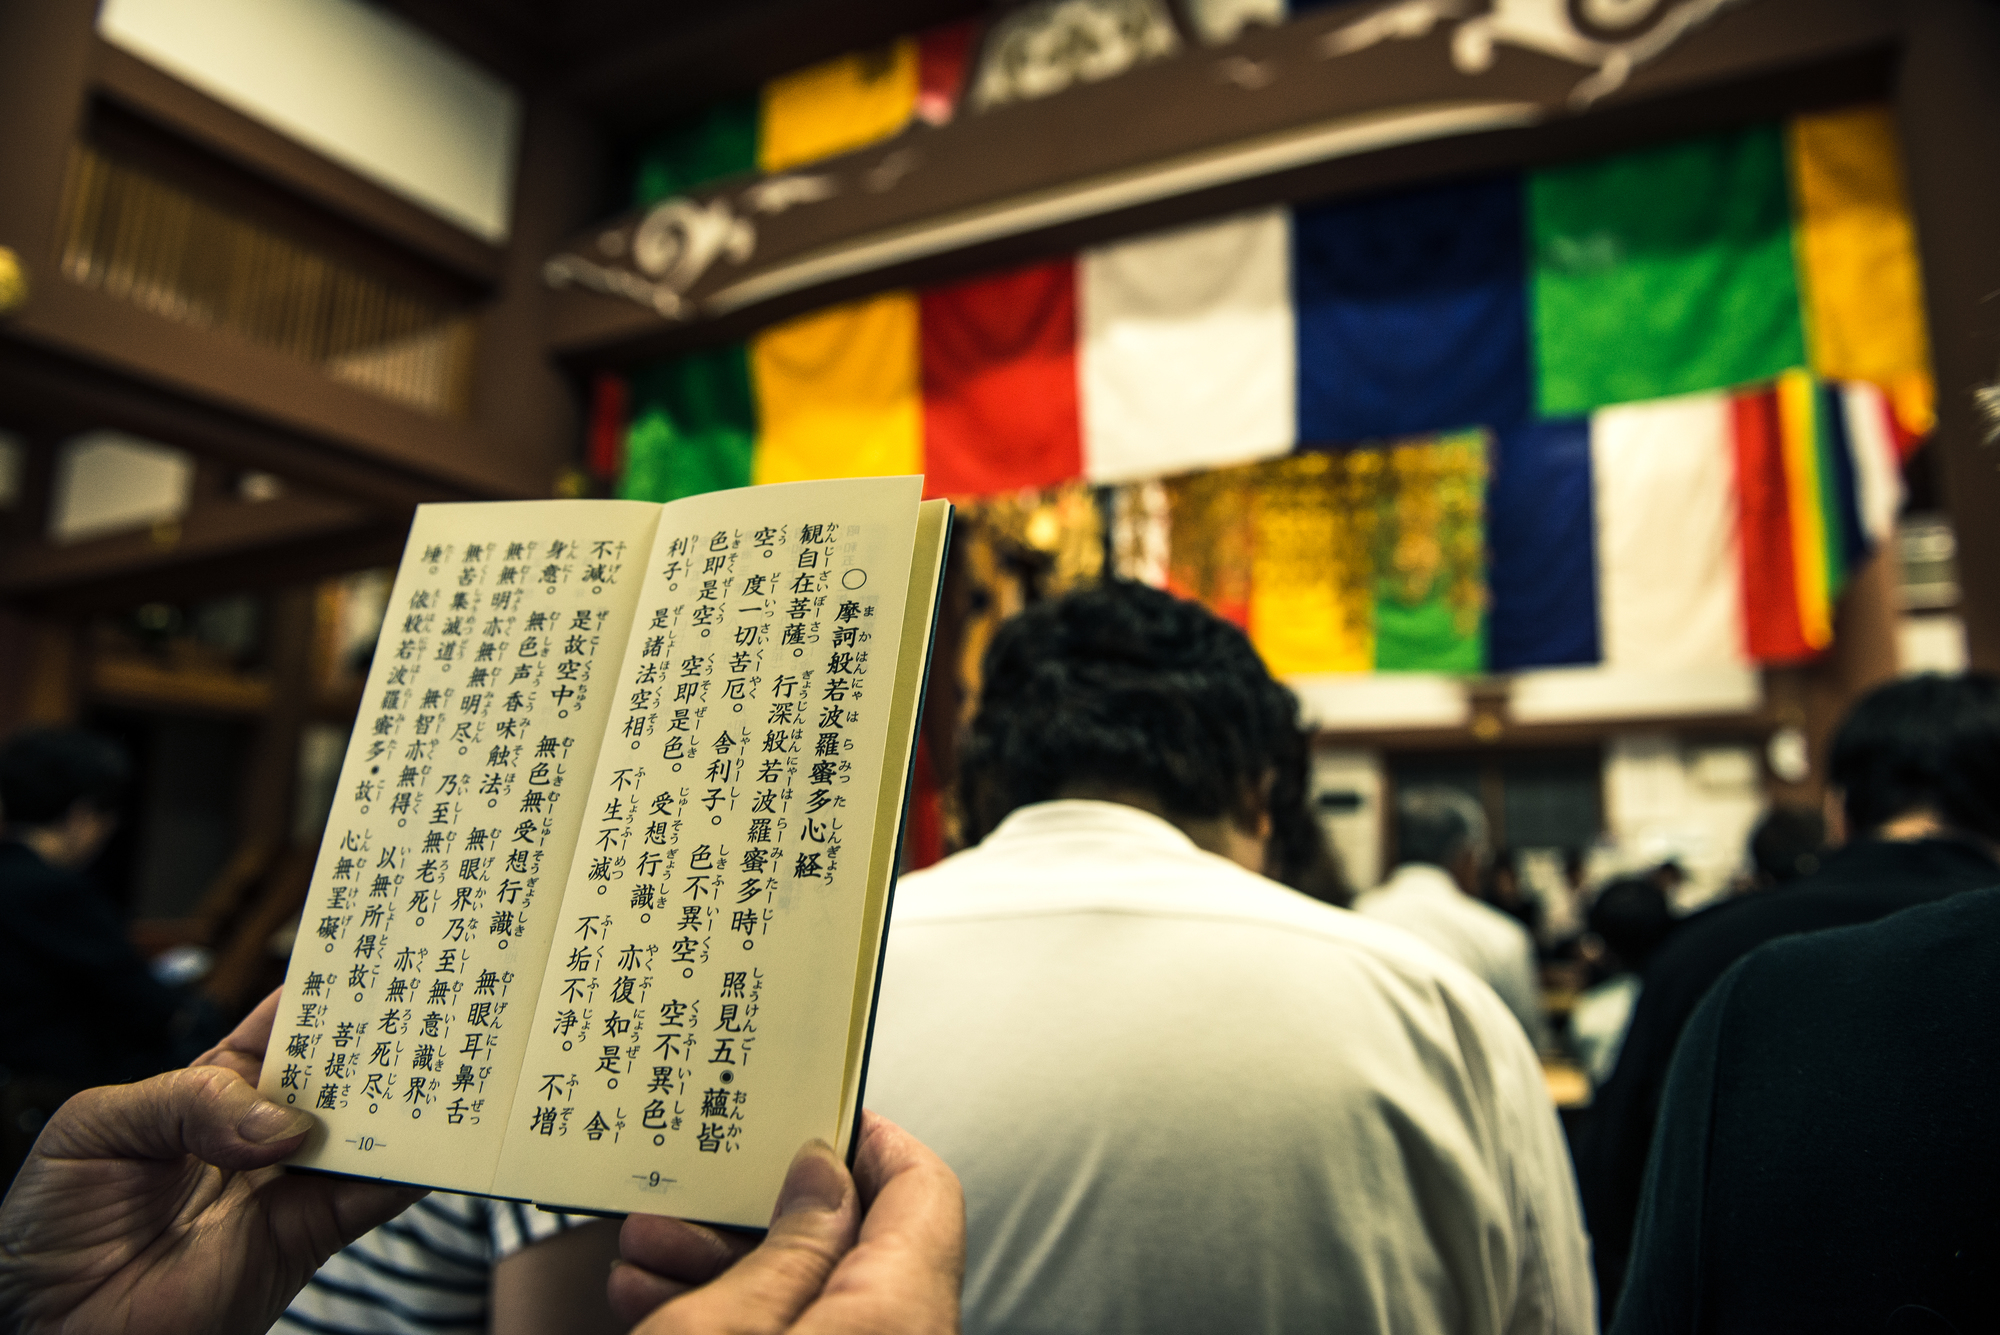 ○摩訶般若波羅蜜多心経
観自在菩薩。行深般若波羅蜜多時。照見五◉蘊皆
空。度一切苦厄。舎利子。色不異空。空不異色。
色即是空。空即是色。受想行識。亦復如是。舎
利子。是諸法空相。不生不滅。不垢不浄。不増
—9—
不減。是故空中。無色無受想行識。無眼耳鼻舌
身意。無色声香味触法。無眼界乃至無意識界。
無無明亦無無明尽。乃至無老死。亦無老死尽。
無苦集滅道。無智亦無得。以無所得故。菩提薩
埵。依般若波羅蜜多●故。心無罣礙。無罣礙故。
—10—